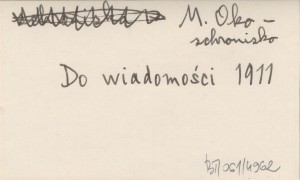 M. Oko –
schronisko
Do wiadomości 1911
BJ/061/4962